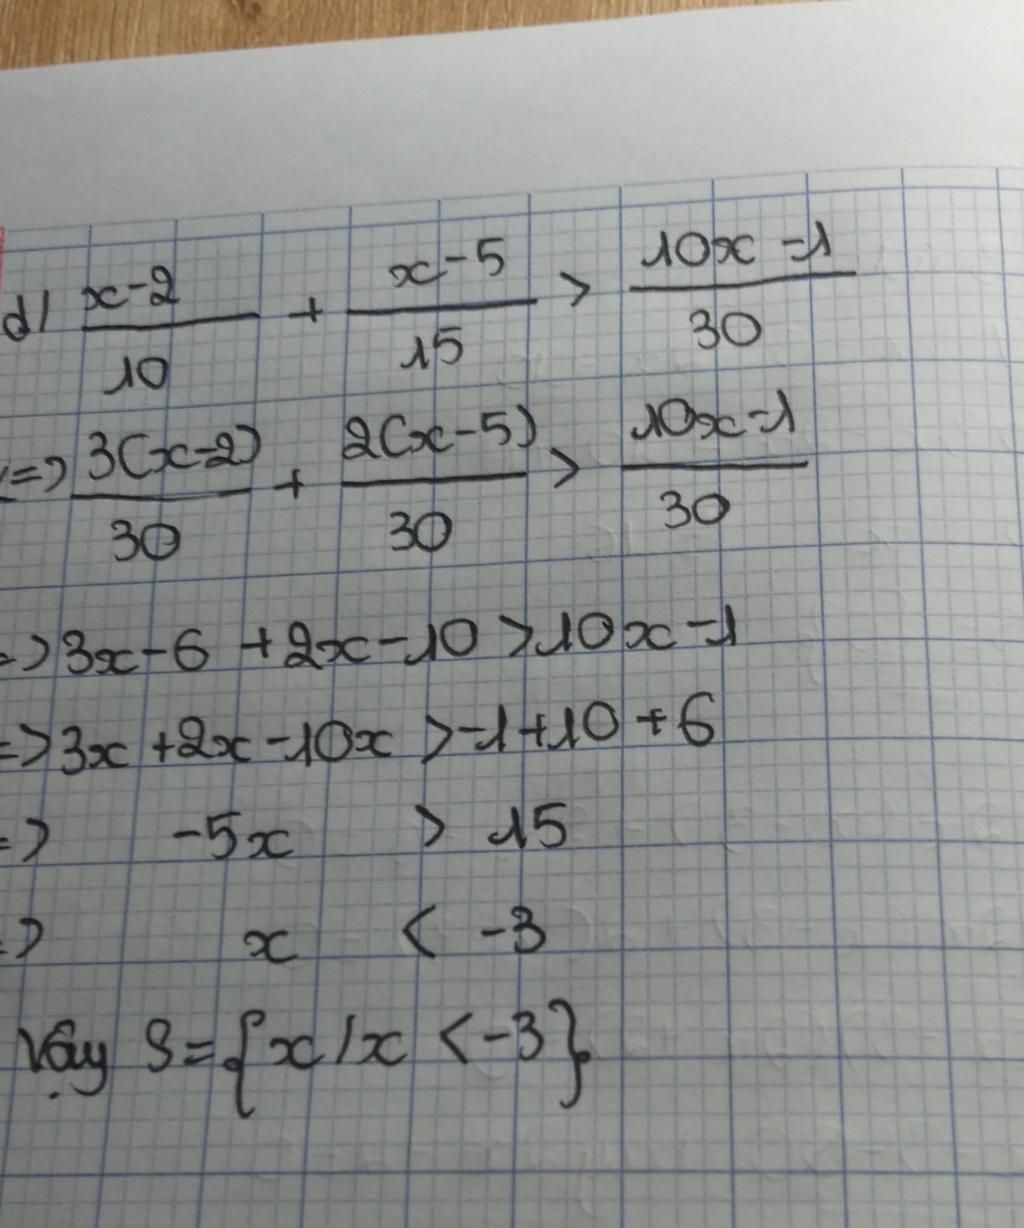 d/ (x-2)/10 + (x-5)/15 > (10x-1)/30
<=> 3(x-2)/30 + 2(x-5)/30 > (10x-1)/30
=> 3x-6 +2x-10 > 10x-1
=> 3x +2x-10x > -1+10+6
=> -5x > 15
=> x < -3
Vậy S={x/x < -3}